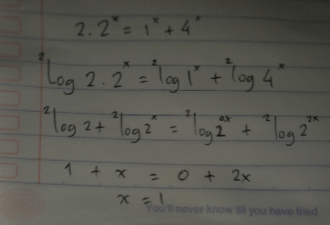 2.2ˣ = 1ˣ + 4ˣ
²log 2.2ˣ = ²log 1ˣ + ²log 4ˣ
²log 2 + ²log 2ˣ = ²log 2⁰ˣ + ²log 2²ˣ
1 + x = 0 + 2x
x = 1
You'll never know till you have tried